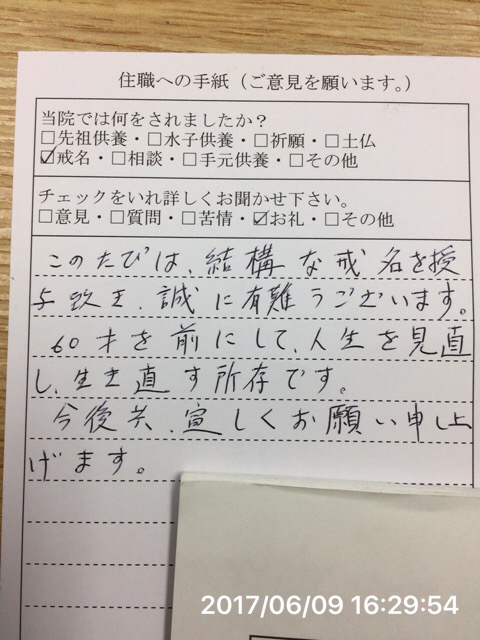 住職への手紙（ご意見を願います。）
当院では何をされましたか？
□先祖供養・□水子供養・□祈願・□土仏
☑戒名・□相談・□手元供養・□その他
チェックをいれ詳しくお聞かせ下さい。
□意見・□質問・□苦情・☑お礼・□その他
このたびは、結構な戒名を授
与頂き、誠に有難うございます。
60才を前にして、人生を見直
し、生き直す所存です。
今後共、宜しくお願い申し上
げます。
2017/06/09 16:29:54